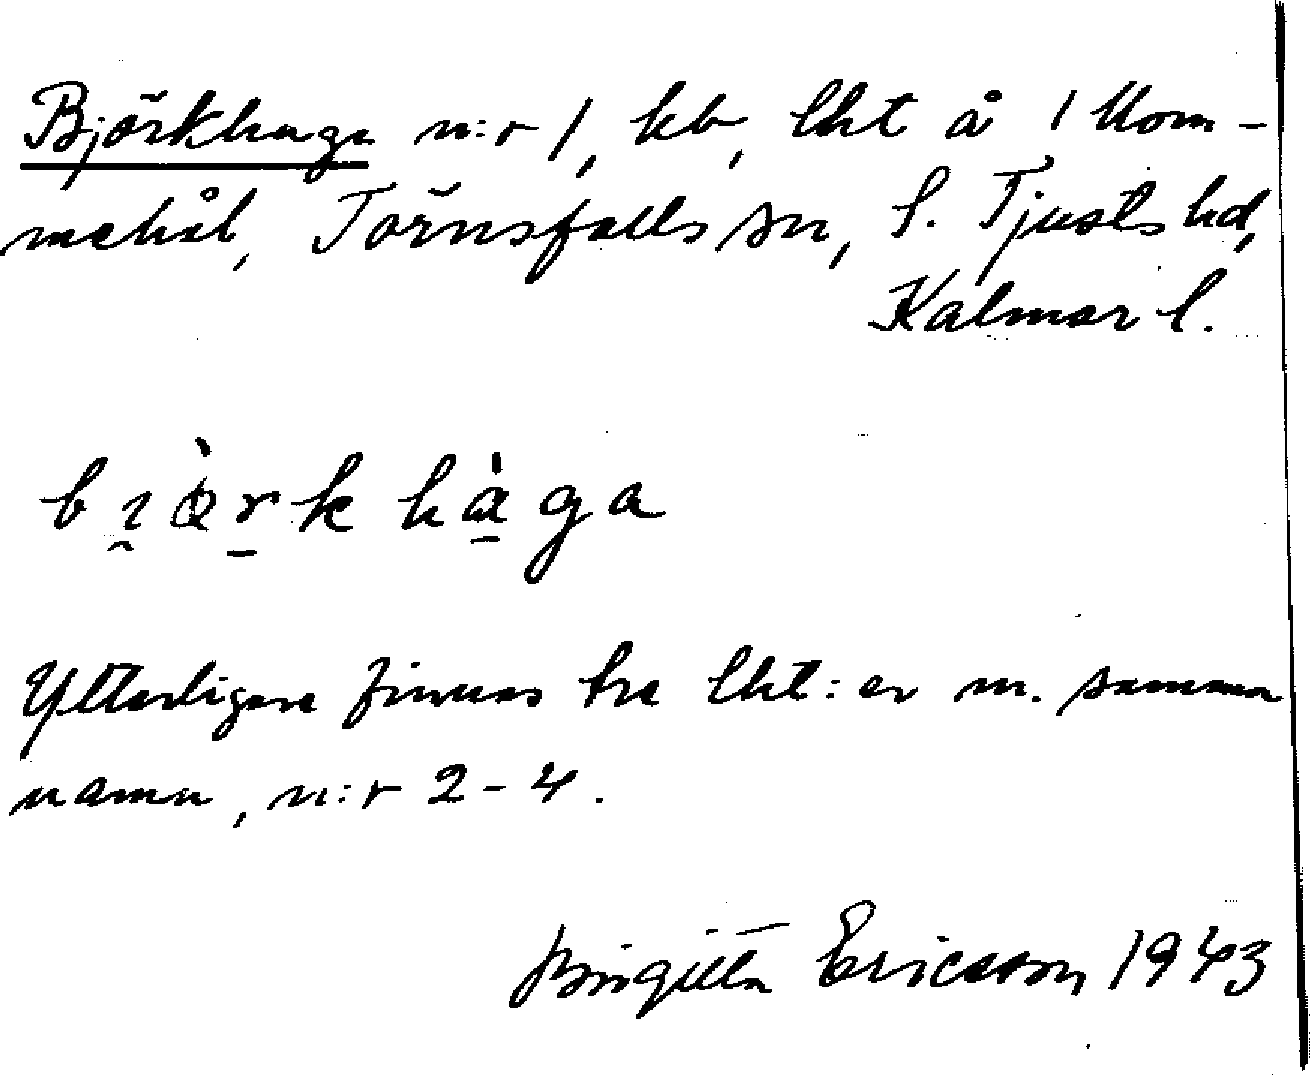 Björkhaga n:r 1, kb, lht å 1 Mom-
mehål, Törnsfalls sn, S. Tjusts hd,
Kalmar l.
bi̯ö̀r̠k hà̠ga
Ytterligare finnas tre lht:er m. samma
namn, n:r 2-4.
Birgitta Ericsson 1943